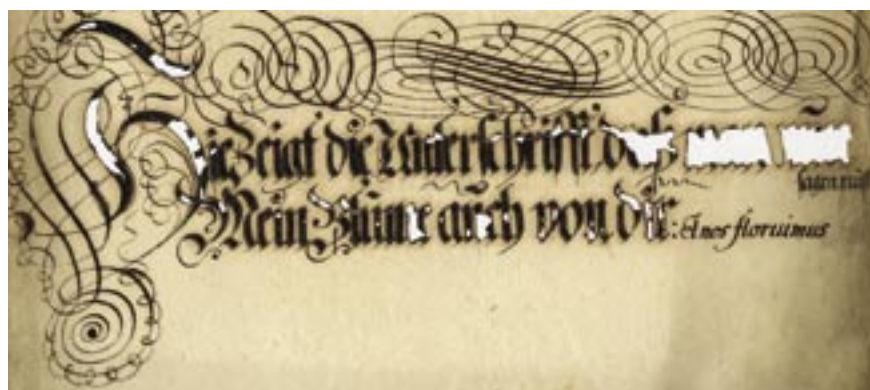 Hie Zeigt die Unterschrifft daß
sagen
Mein Blume auch von dir: Et nos floruimus